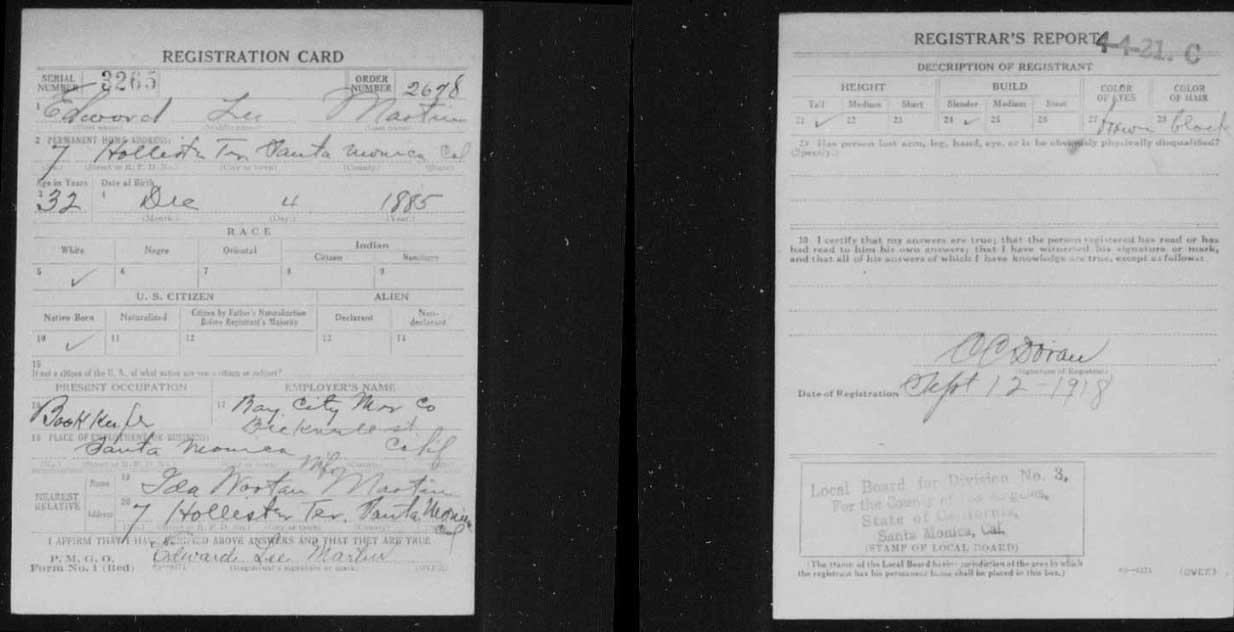 REGISTRATION CARD
SERIAL NUMBER 3265 ORDER NUMBER 2678
1 Edward Lee Martin
2 PERMANENT HOME ADDRESS:
7 Hollister Ter Santa Monica Cal
(No.) (Street or R. F. D. No.) (City or town) (County) (State)
Age in Years Date of Birth
3 32 4 Dec 4 1885
(Month.) (Day.) (Year.)
RACE
White Negro Oriental Indian
Citizen Noncitizen
5 ✓ 6 7 8 9
U. S. CITIZEN ALIEN
Native Born Naturalized Citizen by Father's Naturalization Before Registrant's Majority Declarant Non-declarant
10 ✓ 11 12 13 14
15
If not a citizen of the U. S., of what nation are you a citizen or subject?
PRESENT OCCUPATION EMPLOYER'S NAME
16 Bookkeeper 17 Bay City Co
18 PLACE OF EMPLOYMENT OR BUSINESS:
Santa Monica Calif
NEAREST RELATIVE
Name 19 Ida Martin
Address 20 7 Hollister Ter. Santa Monica Cal
I AFFIRM THAT I HAVE VERIFIED ABOVE ANSWERS AND THAT THEY ARE TRUE
P. M. G. O.
Form No. 1 (Red) Edward Lee Martin
(Registrant's signature or mark) (OVER)
REGISTRAR'S REPORT 4-4-21. C
DESCRIPTION OF REGISTRANT
HEIGHT BUILD COLOR OF EYES COLOR OF HAIR
Tall Medium Short Slender Medium Stout
21 ✓ 22 23 24 ✓ 25 26 27 brown 28 black
29 Has person lost arm, leg, hand, eye, or is he obviously physically disqualified?
(Specify.)
30 I certify that my answers are true; that the person registered has read or has
had read to him his own answers; that I have witnessed his signature or mark,
and that all of his answers of which I have knowledge are true, except as follows:
C C Doran
(Signature of Registrar)
Date of Registration Sept 12 - 1918
Local Board for Division No. 3,
For the County of Los Angeles,
State of California,
Santa Monica, Cal.
(STAMP OF LOCAL BOARD)
(The stamp of the Local Board having jurisdiction of the area in which
the registrant has his permanent home shall be placed in this box.)
(OVER)